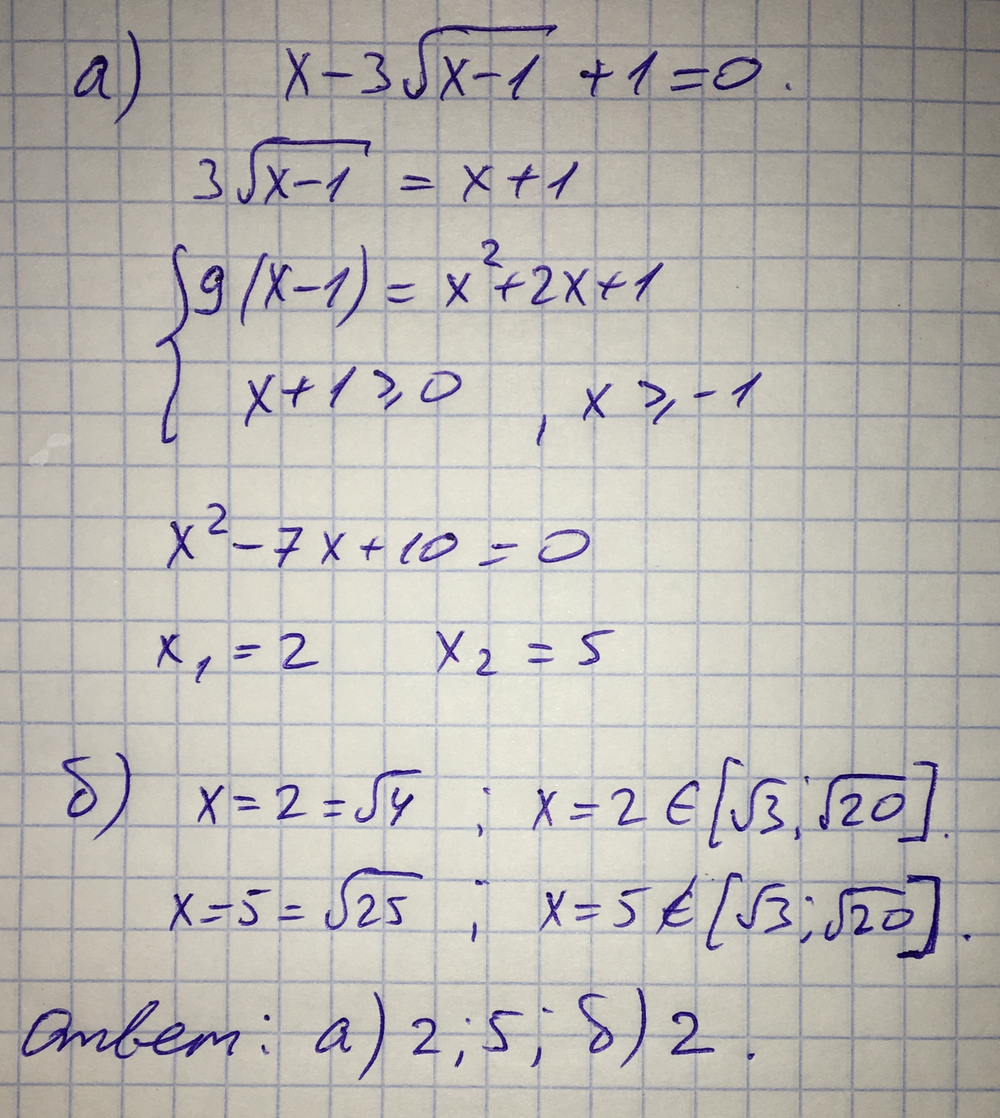 а) x-3√(x-1) +1=0.
3√(x-1) = x+1
{9(x-1)= x²+2x+1
x+1⩾0 , x ⩾ -1
x²-7x+10=0
x₁=2 x₂=5
б) x=2=√4 ; x=2∈[√3;√20].
x=5=√25 ; x=5∉[√3;√20].
Ответ: а) 2;5; б) 2.